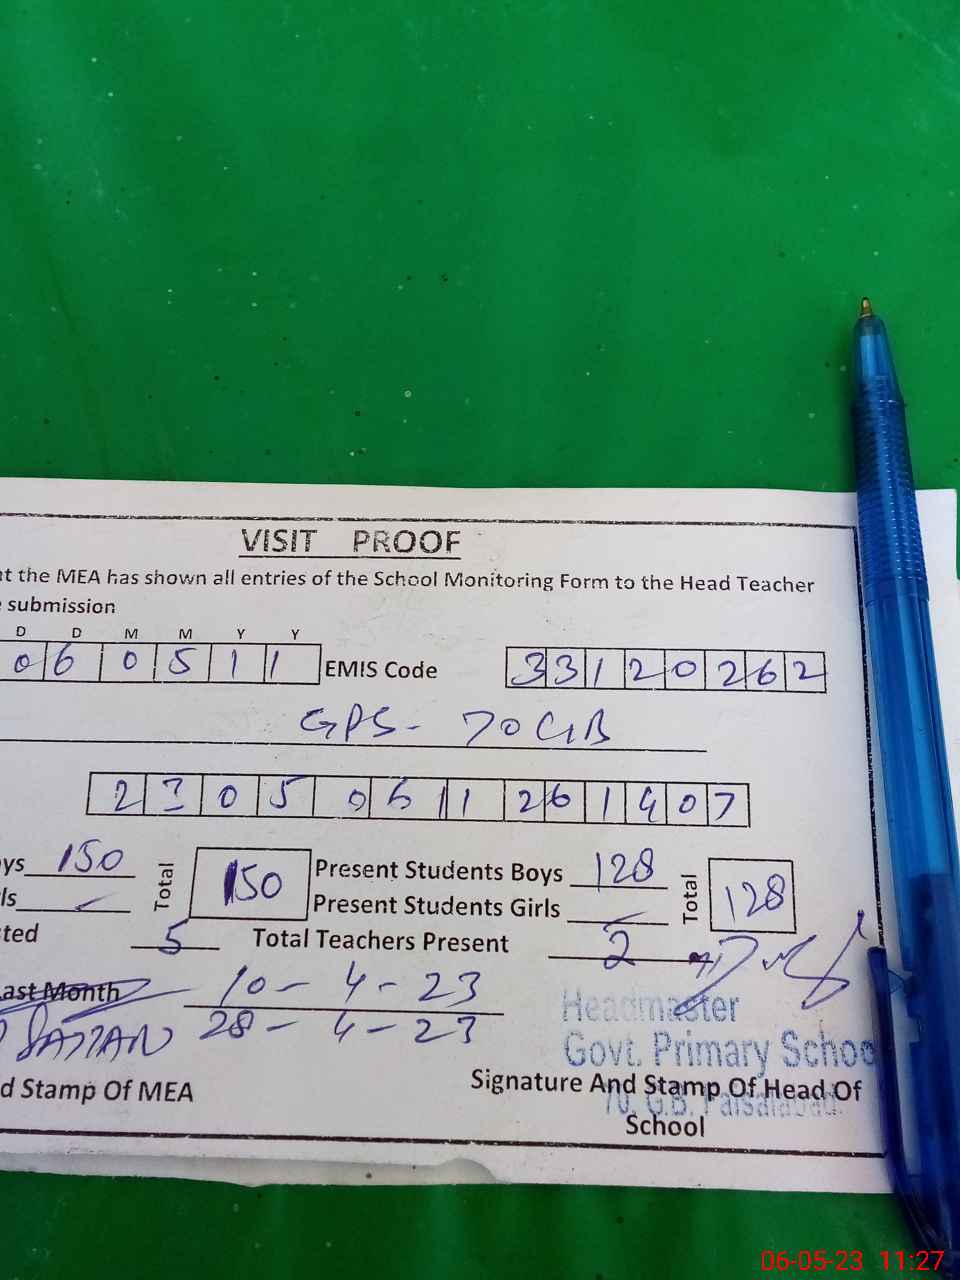 VISIT PROOF
at the MEA has shown all entries of the School Monitoring Form to the Head Teacher
submission
D D M M Y Y
0 6 0 5 1 1 EMIS Code 3 3 1 2 0 2 6 2
GPS- 70 GB
2 3 0 5 0 6 1 1 2 6 1 4 0 7
ys 150 Total 150 Present Students Boys 128 Total 128
ls - Present Students Girls -
ted 5 Total Teachers Present 2
ast Month 10 - 4 - 23
28 - 4 - 23
Headmaster
Govt. Primary Schoo
70, G.B. Faisalabad.
d Stamp Of MEA
Signature And Stamp Of Head Of
School
06-05-23 11:27